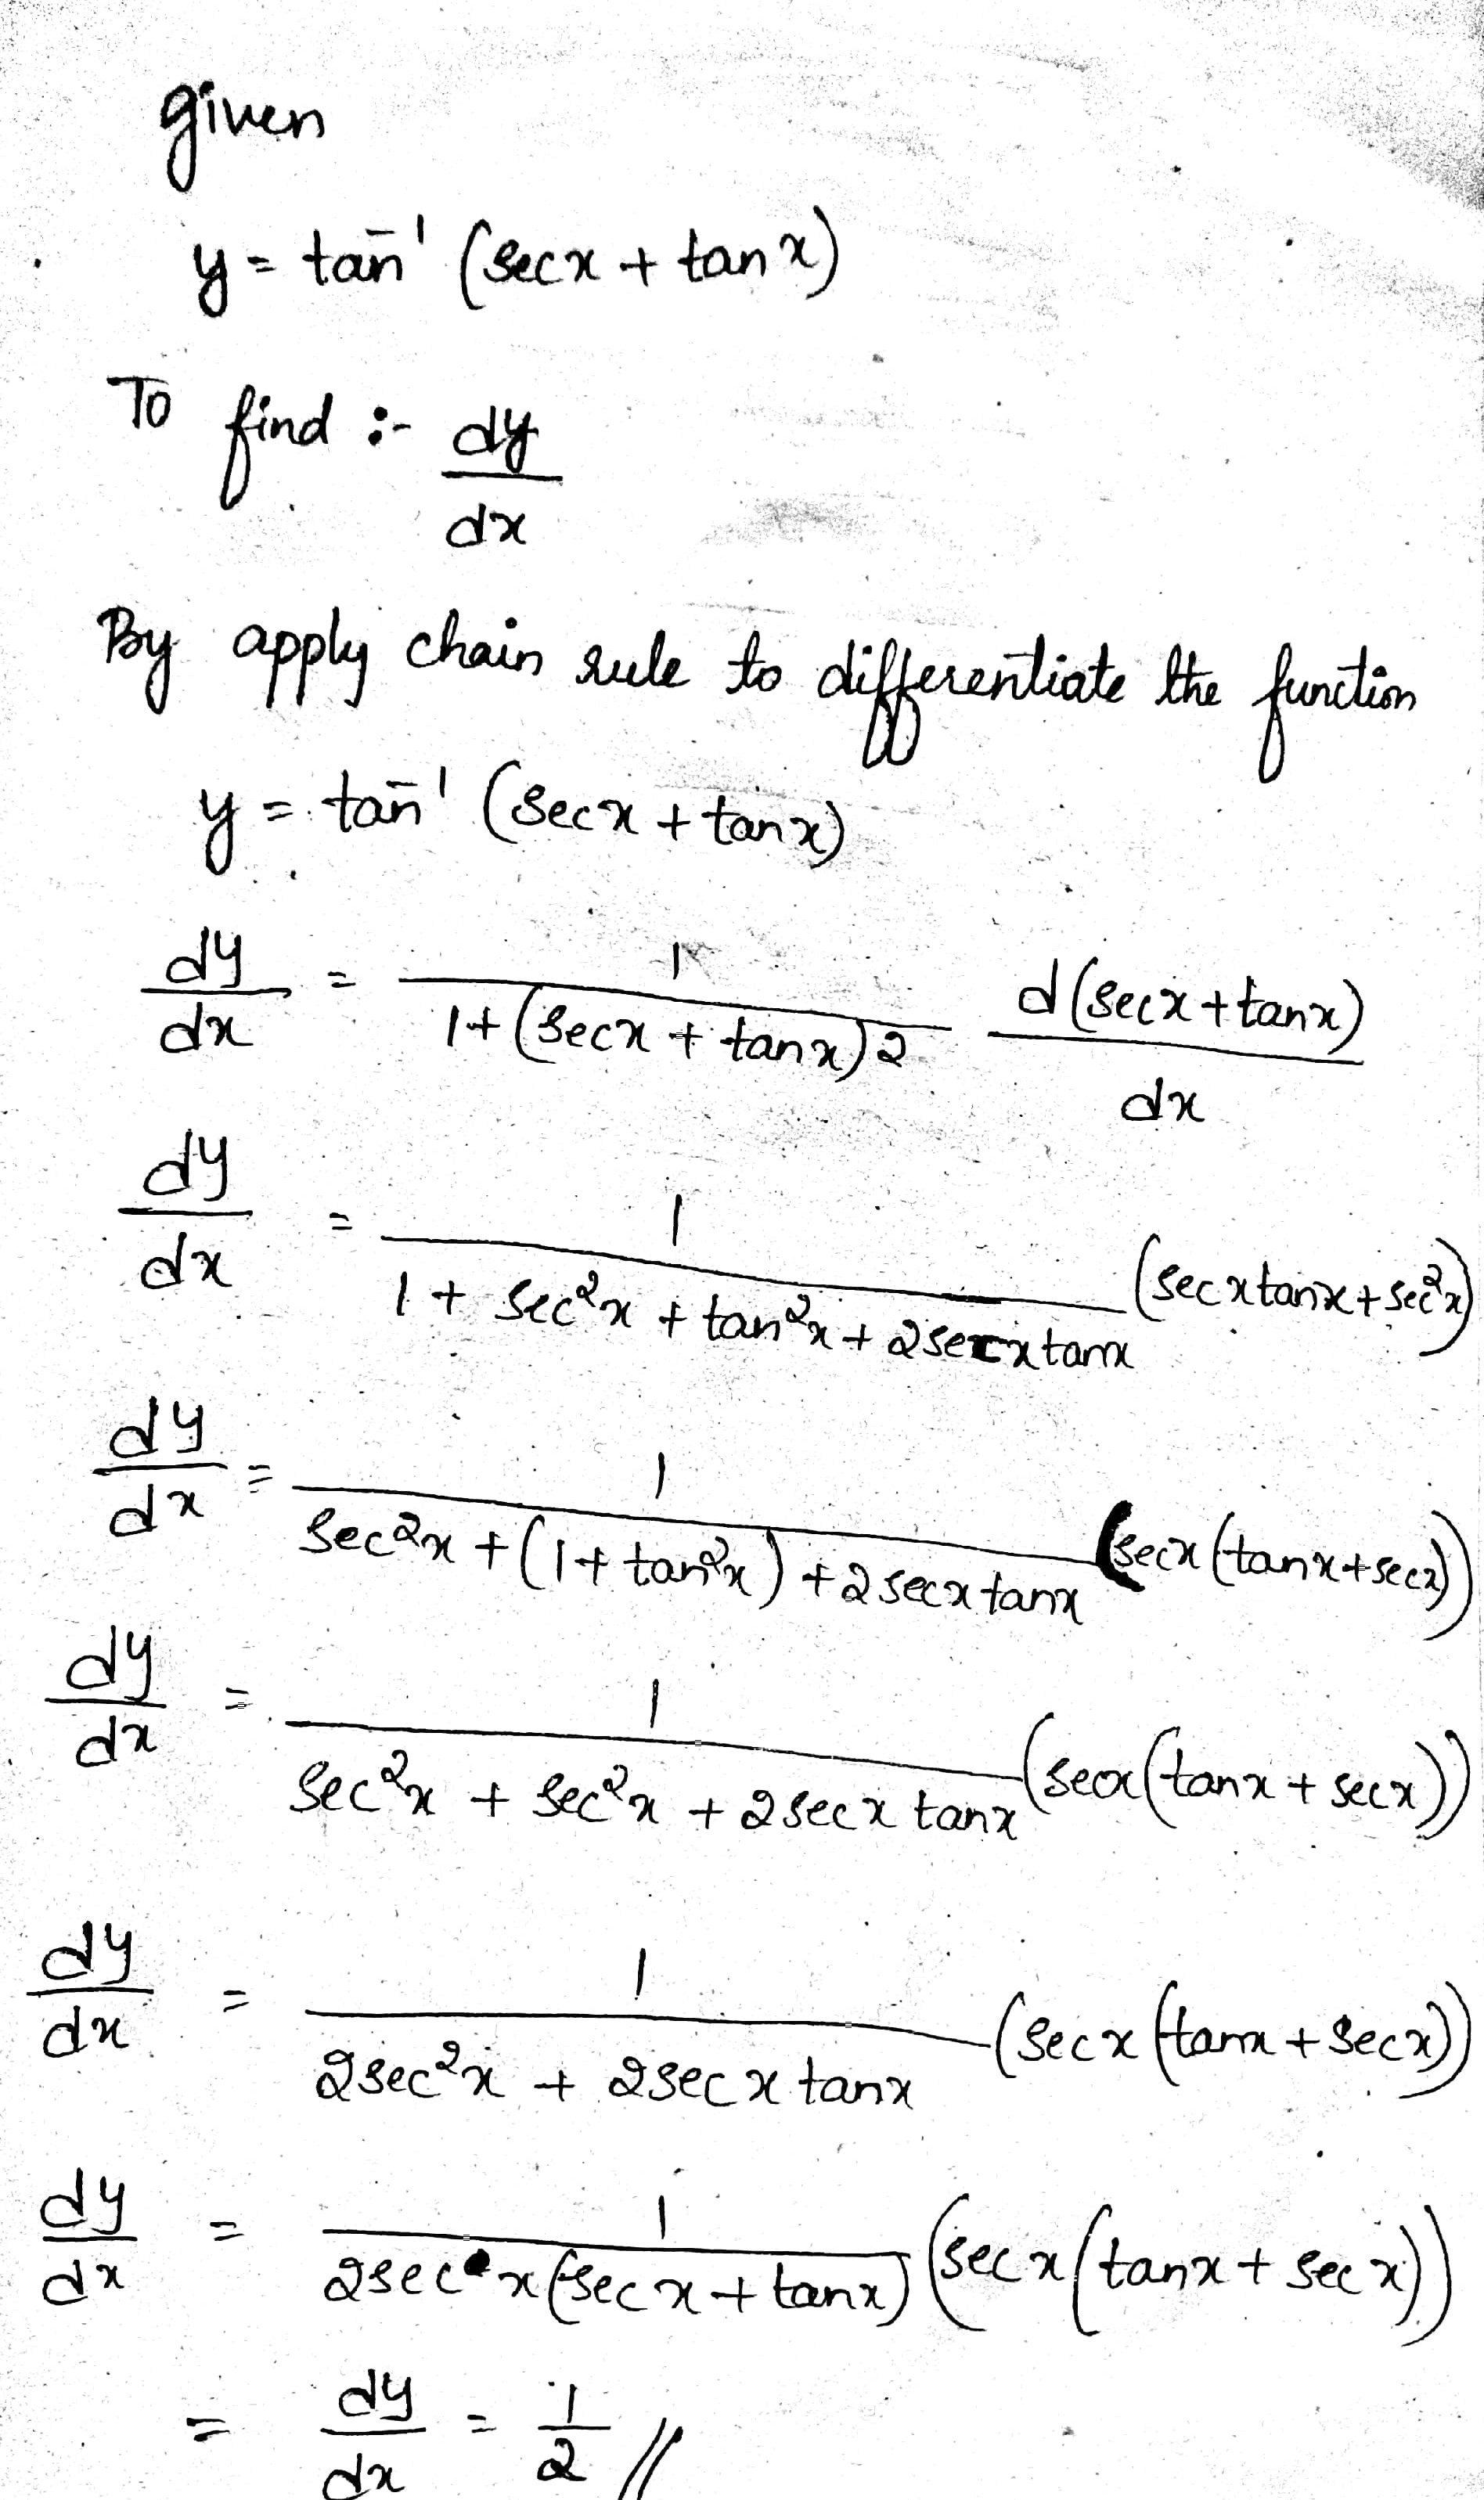 given
y = tan⁻¹ (sec x + tan x)
To find :- dy/dx
By apply chain rule to differentiate the function
y = tan⁻¹ (sec x + tan x)
dy/dx = 1/(1+(sec x + tan x)2) d(sec x + tan x)/dx
dy/dx = 1/(1 + sec²x + tan²x + 2 sec x tan x) (sec x tan x + sec²x)
dy/dx = 1/(sec²x + (1 + tan²x) + 2 sec x tan x) (sec x (tan x + sec x))
dy/dx = 1/(sec²x + sec²x + 2 sec x tan x) (sec x (tan x + sec x))
dy/dx = 1/(2 sec²x + 2 sec x tan x) (sec x (tan x + sec x))
dy/dx = 1/(2 sec x (sec x + tan x)) (sec x (tan x + sec x))
= dy/dx = 1/2 //